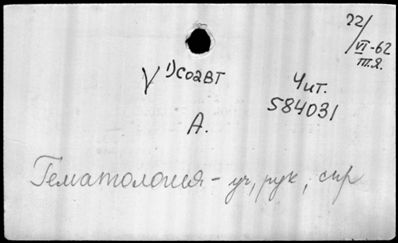 22/
VI-62
т.я.
√ 1) соавт
Чит.
584031
А.
Гематология - уч, рук, спр